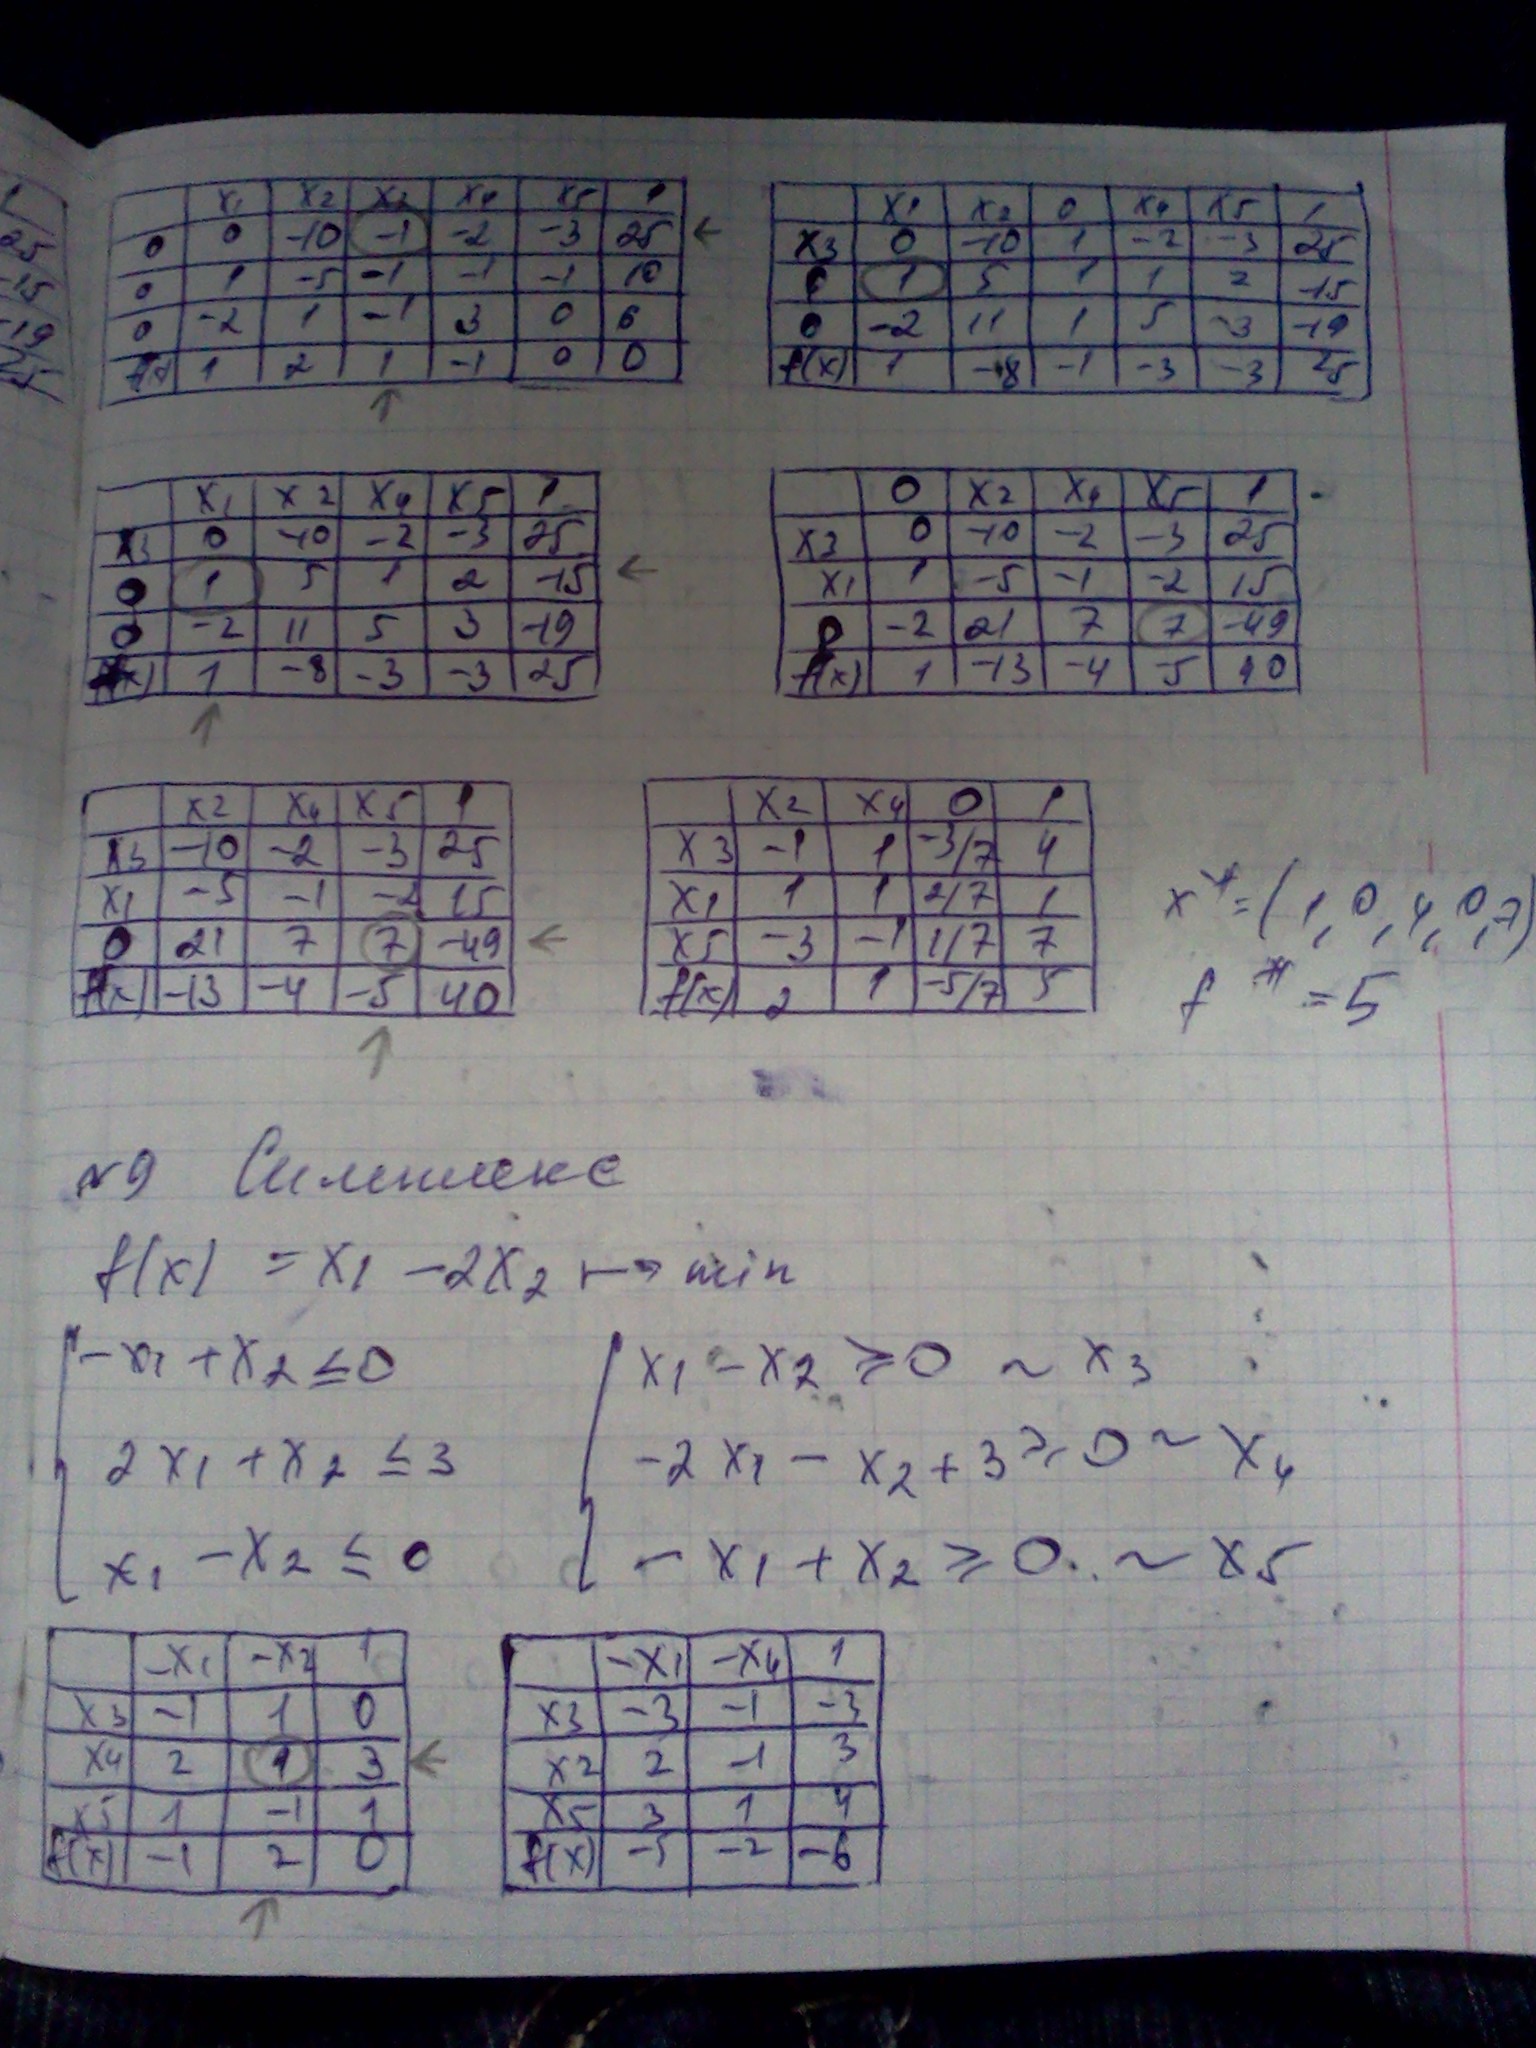 x1 x2 x3 x4 x5 1
0 0 -10 -1 -2 -3 25 ←
0 1 -5 -1 -1 -1 10
0 -2 1 -1 3 0 6
f(x) 1 2 1 -1 0 0
↑
x1 x2 0 x4 x5 1
x3 0 -10 1 -2 -3 25
0 1 5 1 1 2 -15
0 -2 11 1 5 3 -19
f(x) 1 -8 -1 -3 -3 25
x1 x2 x4 x5 1
x3 0 -10 -2 -3 25
0 1 5 1 2 -15 ←
0 -2 11 5 3 -19
f(x) 1 -8 -3 -3 25
↑
0 x2 x4 x5 1
x3 0 -10 -2 -3 25
x1 1 -5 -1 -2 15
0 -2 21 7 7 -49
f(x) 1 -13 -4 -5 40
x2 x4 x5 1
x3 -10 -2 -3 25
x1 -5 -1 -2 15
0 21 7 7 -49 ←
f(x) -13 -4 -5 40
↑
x2 x4 0 1
x3 -1 1 -3/7 4
x1 1 1 2/7 1
x5 -3 -1 1/7 7
f(x) 2 1 -5/7 5
x* = (1, 0, 4, 0, 7)
f* = 5
№9 Симплекс
f(x) = x1 - 2x2 ↦ min
-x1 + x2 ≤ 0
2x1 + x2 ≤ 3
x1 - x2 ≤ 0
x1 - x2 ≥ 0 ~ x3
-2x1 - x2 + 3 ≥ 0 ~ x4
-x1 + x2 ≥ 0 ~ x5
-x1 -x2 1
x3 -1 1 0
x4 2 1 3 ←
x5 1 -1 1
f(x) -1 2 0
↑
-x1 -x4 1
x3 -3 -1 -3
x2 2 -1 3
x5 3 1 4
f(x) -5 -2 -6